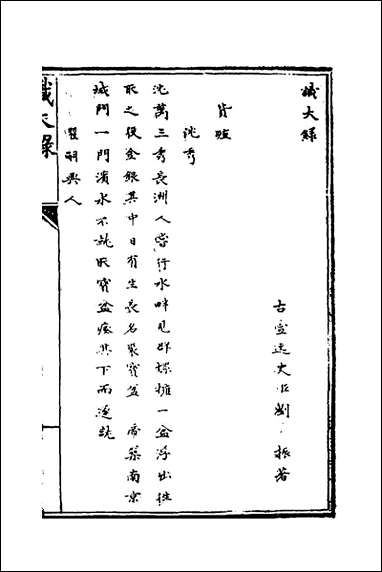 識大錄
古宣逸史臣劉 振著
貨殖
沈秀
沈萬三秀長洲人嘗行水畔見群蝶擁一盆浮出往
取之投金錄其中日有生長名聚寶盆 帝築南京
城門一門濱水不就取寶盆瘞其下而遂就
明興人
識大錄